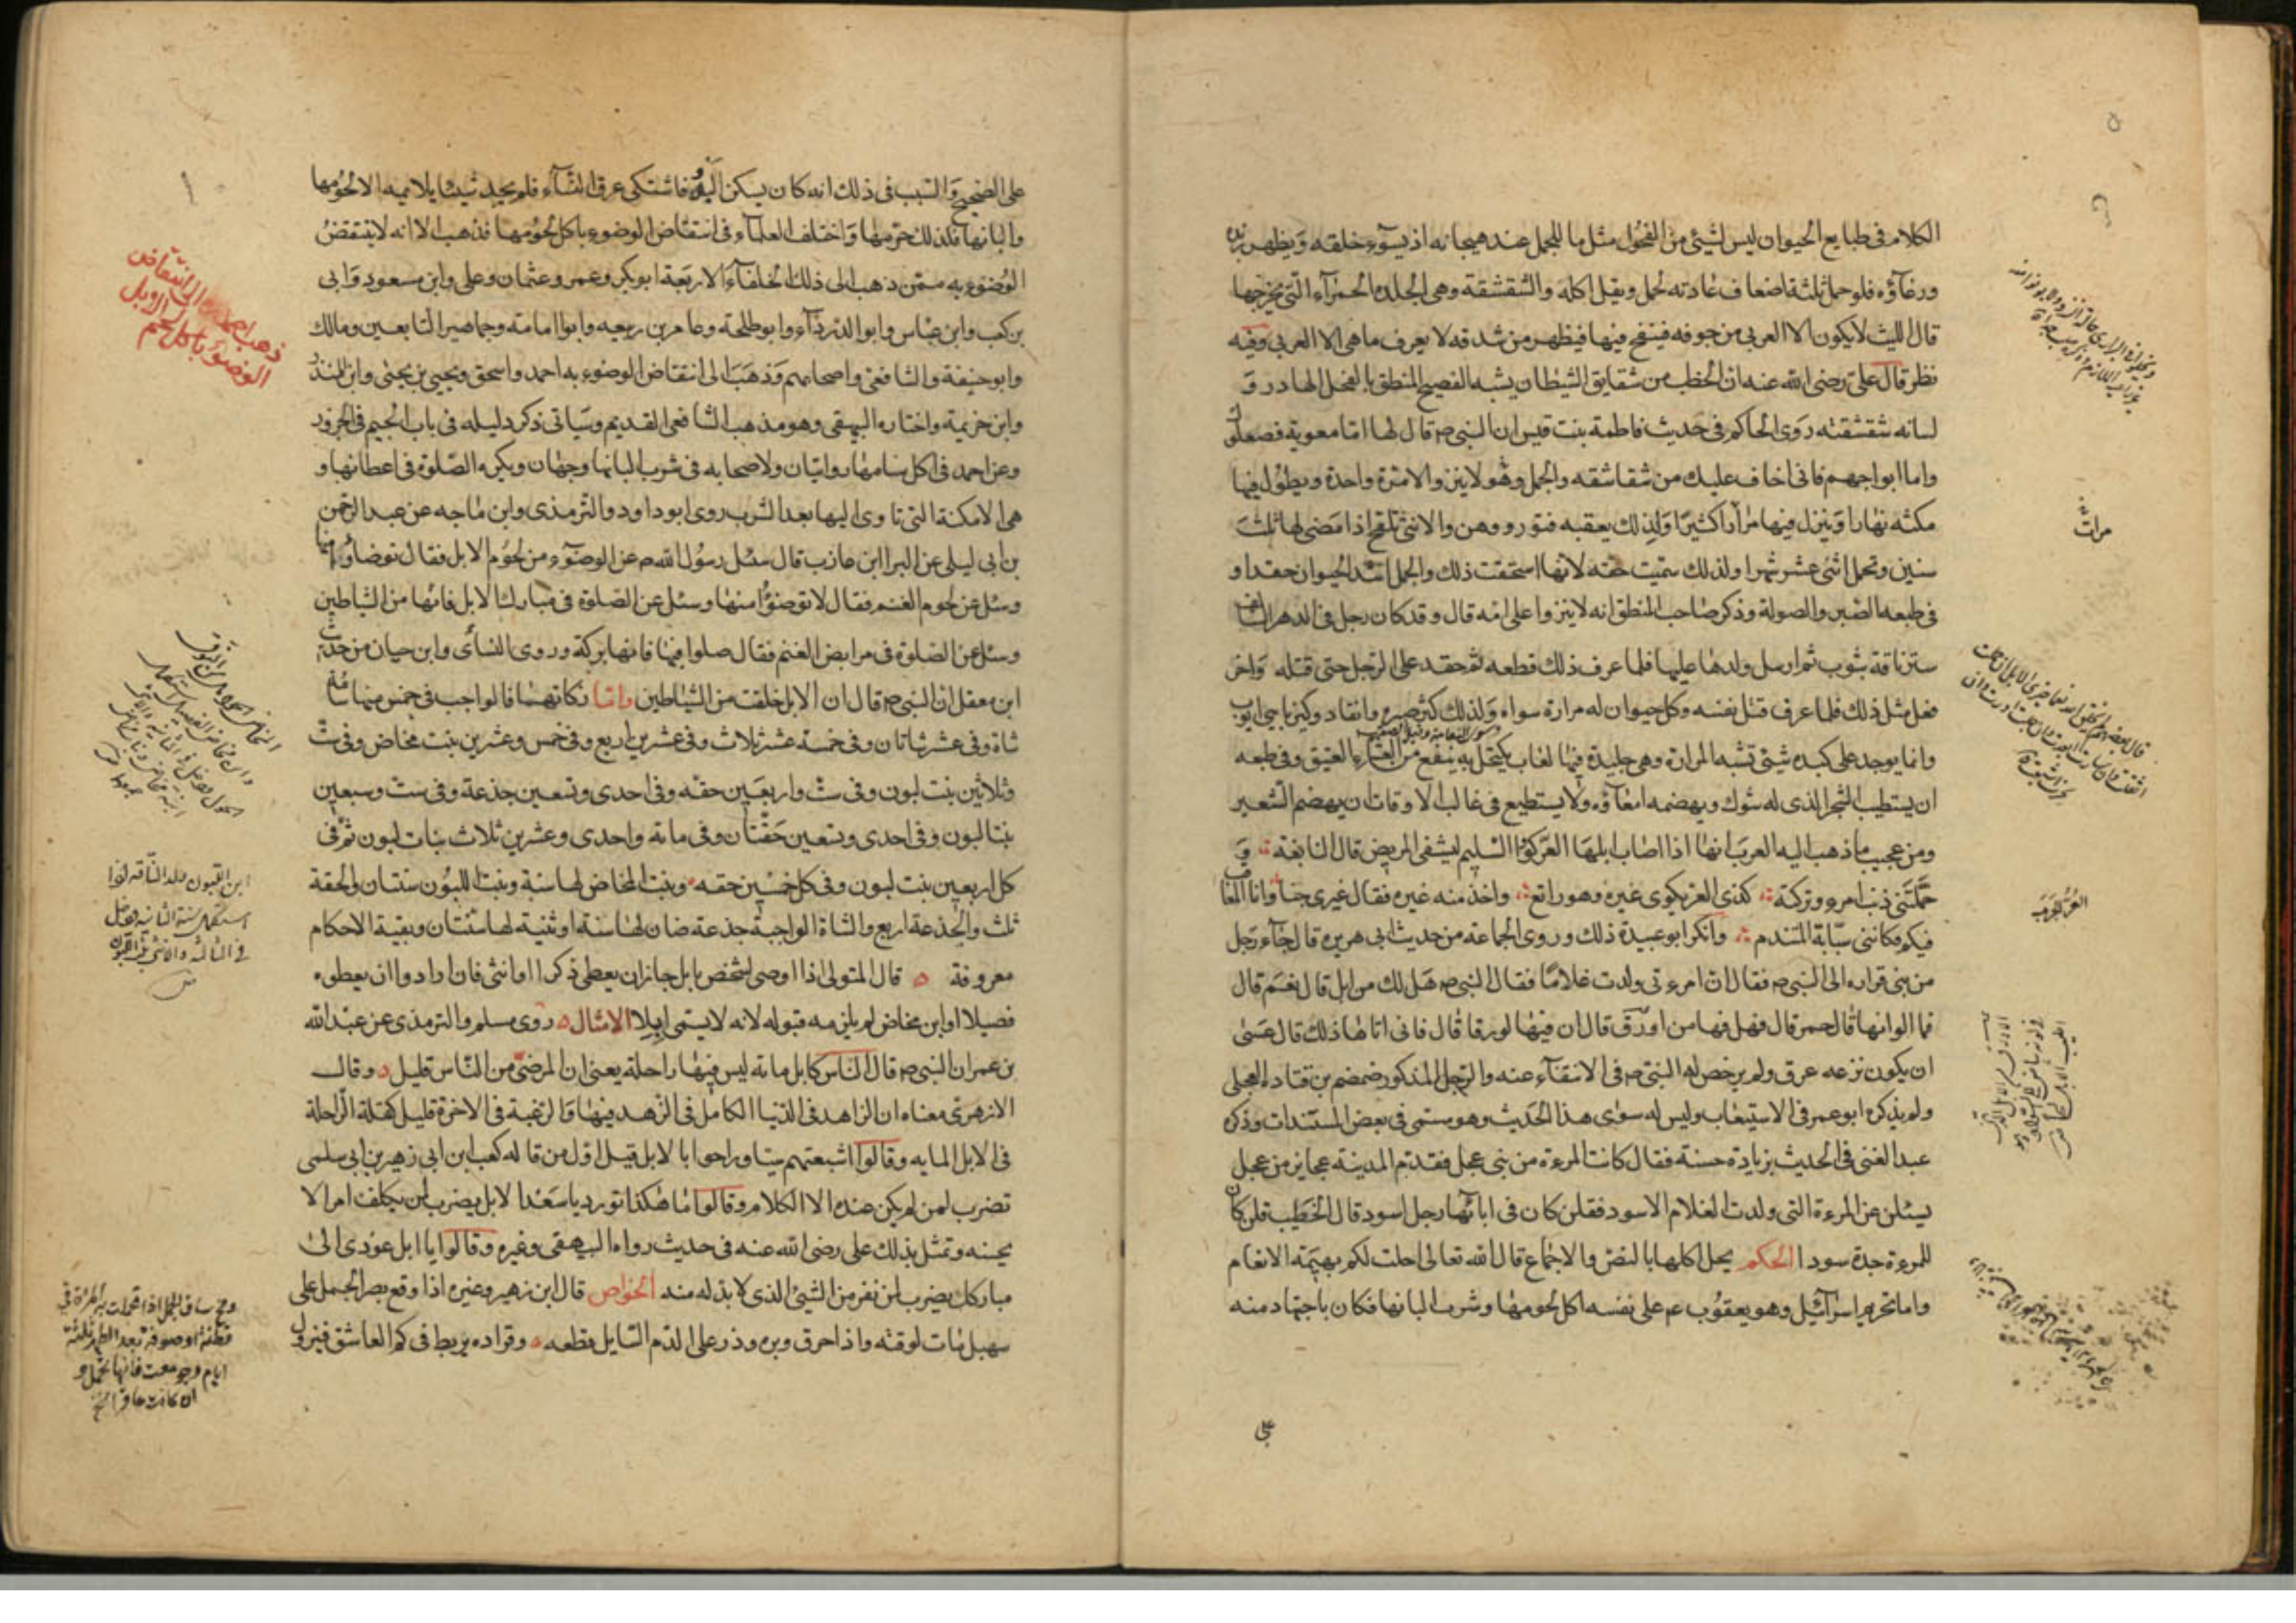 الكلام فى طبايع الحيوان ليس لشيئ من الفحول مثل ما للجمل عند هيجانه اذ يسوء خلقه ويظهر زبده
ورغاؤه فلو حمل ثلثة اضعاف عادته لحمل ويقل اكله والشقشقة وهى الجلده الحمرآء التى يخرجها
قال الليث لا يكون الا العربى من جوفه فينفخ فيها فيظهر من شدقه لا يعرف ما هى الا العربى وفيه
نظر قال على رضى الله عنه ان الخطب من شقايق الشيطان يشبه الفصيح المنطق بالفحل الهادر و
لسانه شقشقته روى الحاكم فى حديث فاطمة بنت قيس ان النبى ص قال لها اما معوية فصعلوك
واما ابواجهم فانى اخاف عليك من شقاشقه والجمل وهو لا ينزو الا مرة واحدة ويطول فيها
مكثه نهارا وينزل فيها مرارا كثيرا ولذلك يعقبه فتور ووهن والانثى تلقح اذا مضى لها ثلث
سنين وتحمل اثنى عشر شهرا ولذلك سميت حقه لانها استحقت ذلك والجمل اشد الحيوان حقدا و
فى طبعه الصبر والصولة وذكر صاحب المنطق انه لا ينزوا على امه قال وقد كان رجل فى الدهر السالف
ستر ناقة بثوب ثم ارسل ولدها عليها فلما عرف ذلك قطعه ثم حقد على الرجل حتى قتله واخر
فعل مثل ذلك فلما عرف قتل نفسه وكل حيوان له مرارة سواه ولذلك كثر صبره وانقاد وكنى بابى ايوب
وانما يوجد على كبده شيئ تشبه المرارة وهى جليدة فيها لعاب يكتحل به ينفع من العشاء العتيق وفى طبعه
ان يستطيب الشجر الذى له شوك ويهضمه امعآؤه ولا يستطيع فى غالب الاوقات ان يهضم الشعير
ومن عجيب ما ذهب اليه العرب انها اذا اصاب ابلها العر كووا السليم ليشفى المريض قال النابغة و
حملتنى ذنب امرء وتركته كذى العر يكوى غيره وهو راتع واخذ منه غيره فقال غيرى جنا وانا المعاقب
فيكم فكاننى سبابة المتندم وانكر ابو عبيدة ذلك وروى الجماعة من حديث ابى هريره قال جآء رجل
من بنى قراره الى النبى ص فقال ان امرءتى ولدت غلاما فقال النبى ص هل لك من ابل قال نعم قال
فما الوانها قال حمر قال فهل فيها من اورق قال ان فيها لورقا قال فانى اتاها ذلك قال عسى
ان يكون نزعه عرق ولم يرخص له النبى ص فى الانتفآء عنه والرجل المذكور ضمضم بن قتاده العجلى
ولم يذكره ابو عمر فى الاستيعاب وليس له سوى هذا الحديث وهو مسمى فى بعض المستندات وذكره
عبد الغنى فى الحديث بزيادة حسنة فقال كانت المرءة من بنى عجل فقدم المدينة عجايز من عجل
يسئلن عن المرءة التى ولدت الغلام الاسود فقلن كان فى ابائها رجل اسود قال الخطيب قلن كان
للمرءة جدة سودا الحكم يحل اكلها بالنص والاجماع قال الله تعالى احلت لكم بهيمة الانعام
واما تحريم اسرآئيل وهو يعقوب عم على نفسه اكل لحومها وشرب البانها فكان باجتهاد منه
على
مرات
على الصحيح والسبب فى ذلك انه كان يسكن البدو فاشتكى عرق النسآء فلم يجد شيئا يلايمه الا لحومها
والبانها فلذلك حرمها واختلف العلمآء فى انتقاض الوضوء باكل لحومها فذهب الا انه لا ينتقض
الوضوء به ممن ذهب الى ذلك الخلفآء الاربعة ابو بكر وعمر وعثمان وعلى وابن مسعود وابى
بن كعب وابن عباس وابو الدردآء وابو طلحة وعامر بن ربيعه وابوا امامة وجماهير التابعين ومالك
وابو حنيفة والشافعى واصحابهم وذهب الى انتقاض الوضوء به احمد واسحق ويحيى بن يحيى وابن المنذر
وابن خزيمة واختاره البيهقى وهو مذهب الشافعى القديم وسياتى ذكر دليله فى باب الجيم فى الجزور
وعن احمد فى اكل سنامها روايتان ولاصحابه فى شرب البانها وجهان ويكره الصلوة فى اعطانها و
هى الامكنة التى تاوى اليها بعد الشرب روى ابو داود والترمذى وابن ماجه عن عبد الرحمن
بن ابى ليلى عن البرا ابن عازب قال سئل رسول الله ص عن الوضوء من لحوم الابل فقال توضاؤا منها
وسئل عن لحوم الغنم فقال لا توضؤا منها وسئل عن الصلوة فى مبارك الابل فانها من الشياطين
وسئل عن الصلوة فى مرابض الغنم فقال صلوا فيها فانها بركة وروى النسائى وابن حيان من حديث
ابن مغفل ان النبى ص قال ان الابل خلقت من الشياطين واما زكاتهما فالواجب فى خمس منها شاة
شاة وفى عشر شاتان وفى خمسة عشر ثلاث وفى عشرين اربع وفى خمس وعشرين بنت مخاض وفى ست
وثلاثين بنت لبون وفى ست واربعين حقه وفى احدى وتسعين جذعة وفى ست وسبعين
بنتا لبون وفى احدى وتسعين حقتان وفى مائة واحدى وعشرين ثلاث بنات لبون ثم فى
كل اربعين بنت لبون وفى كل خمسين حقه وبنت المخاض لها سنة وبنت اللبون سنتان والحقة
ثلث والجذعة اربع والشاة الواجبة جذعة ضان لها سنة او ثنية لها سنتان وبقية الاحكام
معروفة قال المتولى اذا اوصى لشخص بابل جاز ان يعطى ذكرا او انثى فان ارادوا ان يعطوه
فصيلا او ابن مخاض لم يلزمه قبوله لانه لا يسمى ابلا الامثال روى مسلم والترمذى عن عبد الله
بن عمر ان النبى ص قال الناس كابل مائة ليس فيها راحلة يعنى ان المرضى من الناس قليل وقال
الازهرى معناه ان الزاهد فى الدنيا الكامل فى الزهد فيها والرغبة فى الاخرة قليل كقلة الراحلة
فى الابل المايه وقالوا اشبعتهم سبا وراحوا بالابل قيل اول من قاله كعب ابن ابى زهير بن ابى سلمى
تضرب لمن لم يكن عنده الا الكلام وقالوا ما هكذا تورد يا سعد الابل يضرب لمن يكلف امرا لا
يحسنه وتمثل بذلك على رضى الله عنه فى حديث رواه البيهقى وغيره وقالوا يا ابل عودى الى
مباركك يضرب لمن نفر من الشيئ الذى لا بد له منه الخواص قال ابن زهير وغيره اذا وقع بصر الجمل على
سهيل مات لوقته واذا حرق وبره وذر على الدم السايل قطعه وقراده يربط فى كم العاشق فيزول
ابن اللبون ولد الناقة اذا
استكمل سنة الثانية ودخل
فى الثالثة والانثى بنت لبون
ومخ ساق الجمل اذا تحملت به المرءة فى
قطنة او صوفة بعد الطهر ثلثة
ايام وجومعت فانها تحمل و
ان كانت عاقرا